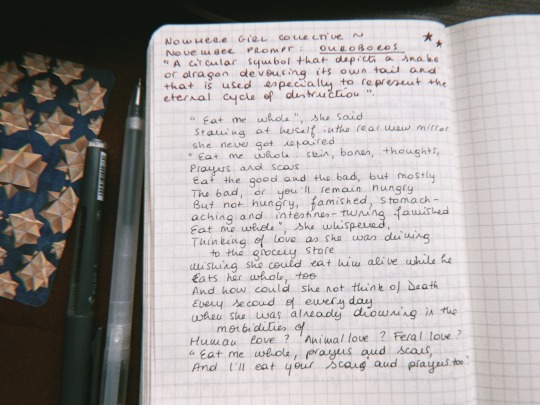 Nowhere Girl Collective ~
November Prompt: OUROBOROS
"A circular symbol that depicts a snake
or dragon devouring its own tail and
that is used especially to represent the
eternal cycle of destruction".
"Eat me whole", she said
Staring at herself in the rear view mirror
she never got repaired
"Eat me whole: skin, bones, thoughts,
Prayers and scars
Eat the good and the bad, but mostly
The bad, or you'll remain hungry
But not hungry, famished, stomach-
aching and intestines-turning famished
Eat me whole", she whispered,
Thinking of love as she was driving
to the grocery store
Wishing she could eat him alive while he
Eats her whole, too
And how could she not think of Death
Every second of everyday
When she was already drowning in the
morbidities of
Human love? Animal love? Feral love?
"Eat me whole, prayers and scars,
And I'll eat your scars and prayers too"